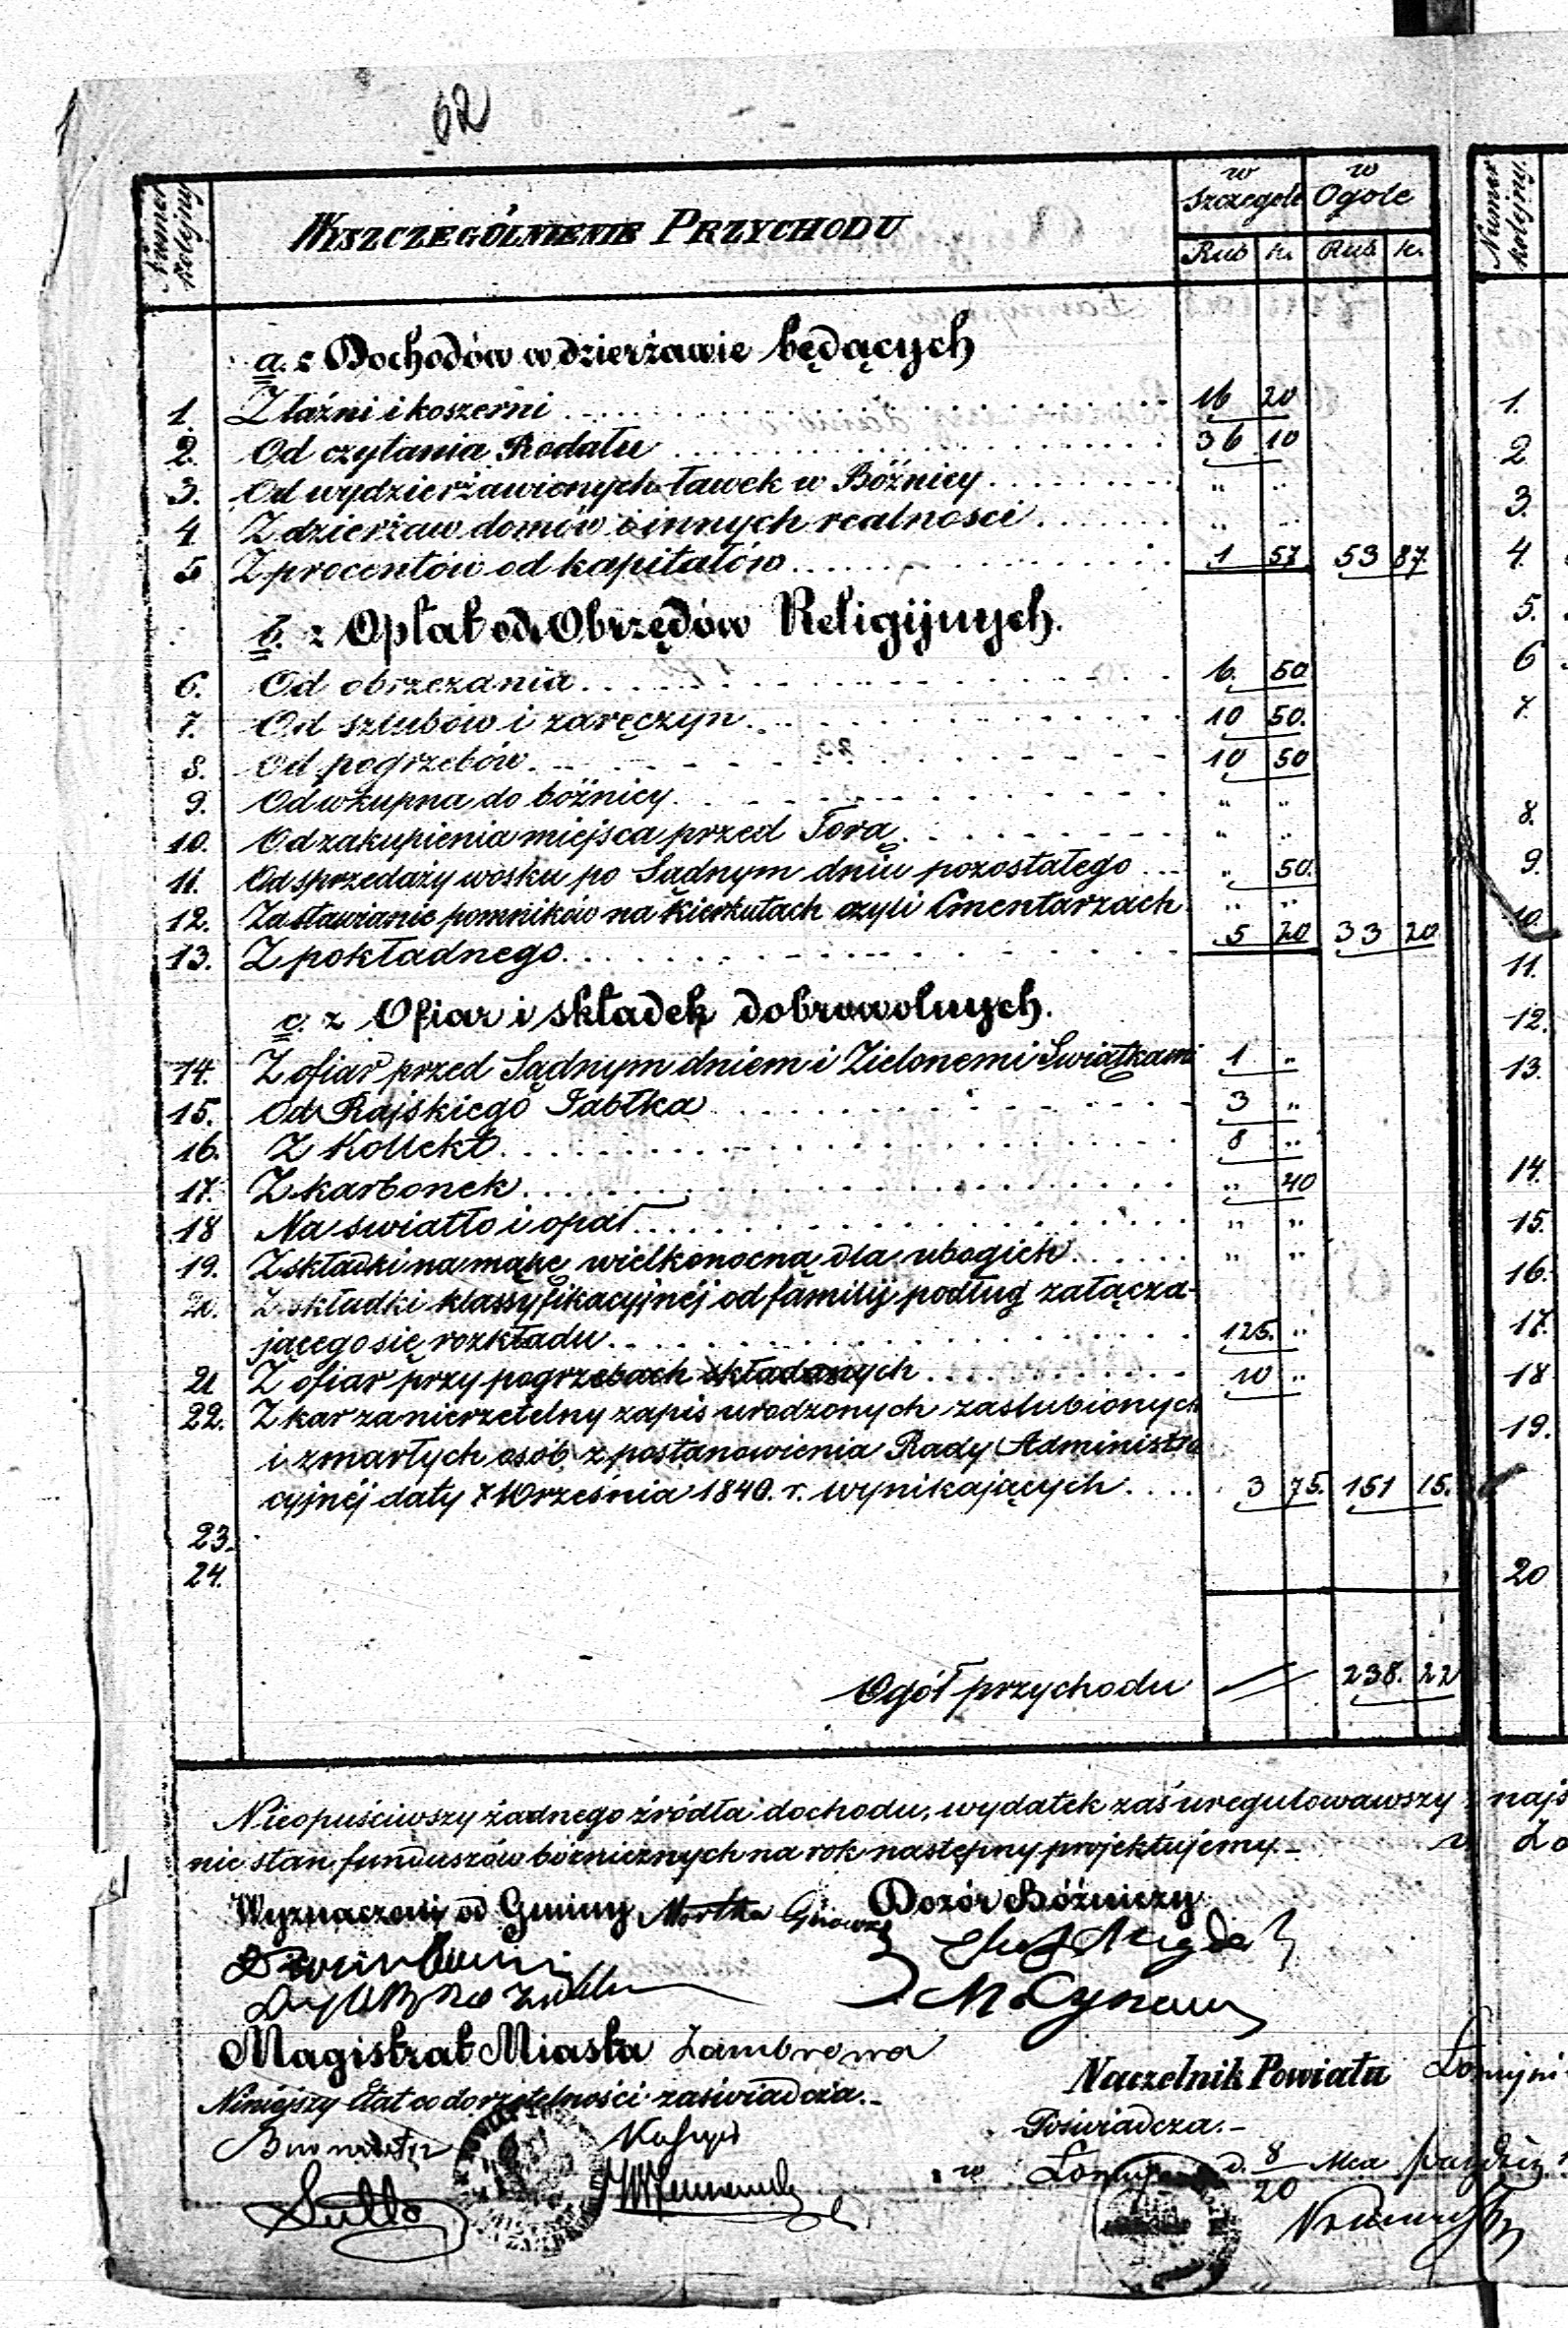 62
Numer kolejny
WYSZCZEGÓLNIENIE PRZYCHODU
w szczegole
w Ogole
Rub k. Rub k.
Numer kolejny.
a. z Dochodów w dzierżawie będących
1. Z łaźni i koszerni . . . 16 20
2. Od czytania Rodału . . . 36 10
3. Od wydzierżawionych ławek w Bóźnicy . . . " "
4 Z dzierżaw domów i innych realnosci . . . " "
5 Z procentów od kapitałów . . . 1 57 53 87
b. z Opłat od Obrzędów Religijnych.
6. Od obrzezania . . . 6. 50
7. Od szlubów i zaręczyn . . . 10 50.
8. Od pogrzebów . . . 10 50
9. Od wkupna do bóżnicy . . . " "
10. Od zakupienia miejsca przed Torą . . . " "
11. Od sprzedaży wosku po Sądnym dniu pozostałego . . . " 50.
12. Za stawianie pomników na Kierkutach czyli Cmentarzach " "
13. Z pokładnego . . . 5 20 33 20
c. z Ofiar i składek dobrowolnych.
14. Z ofiar przed Sądnym dniem i Zielonemi Swiątkami 1 "
15. Od Rajskiego Jabłka . . . 3 "
16. Z Kollekt . . . 8 "
17. Z karbonek . . . " 40
18 Na swiatło i opał . . . " "
19. Z składki na mąkę wielkonocną dla ubogich . . . " "
20. Z składki klassyfikacyjnéj od familij podług załącza-
jącego się rozkładu . . . 125. "
21 Z ofiar przy pogrzebach składanych . . . 10 "
22. Z kar za nierzetelny zapis urodzonych zaslubionych
i zmarłych osób, z postanowienia Rady Administra
cyjnéj daty 7 Września 1840. r. wynikających . . . 3 75. 151 15.
23.
24.
Ogół przychodu 238. 22
Nieopuściwszy żadnego źródła dochodu, wydatek zaś uregulowawszy
nie stan funduszów bóżnicznych na rok następny projektujemy.-
Wyznaczeni od Gminy Dozór Bóżniczy
Magistrat Miasta Zambrowa
Niniejszy Etat co do rzetelności zaświadcza.-
Naczelnik Powiatu
Poświadcza.-
Burmistrz
w D. 8/20 Mca
1.
2.
3.
4.
5.
6
7.
8.
9.
10.
11.
12.
13.
14.
15.
16.
17.
18
19.
20